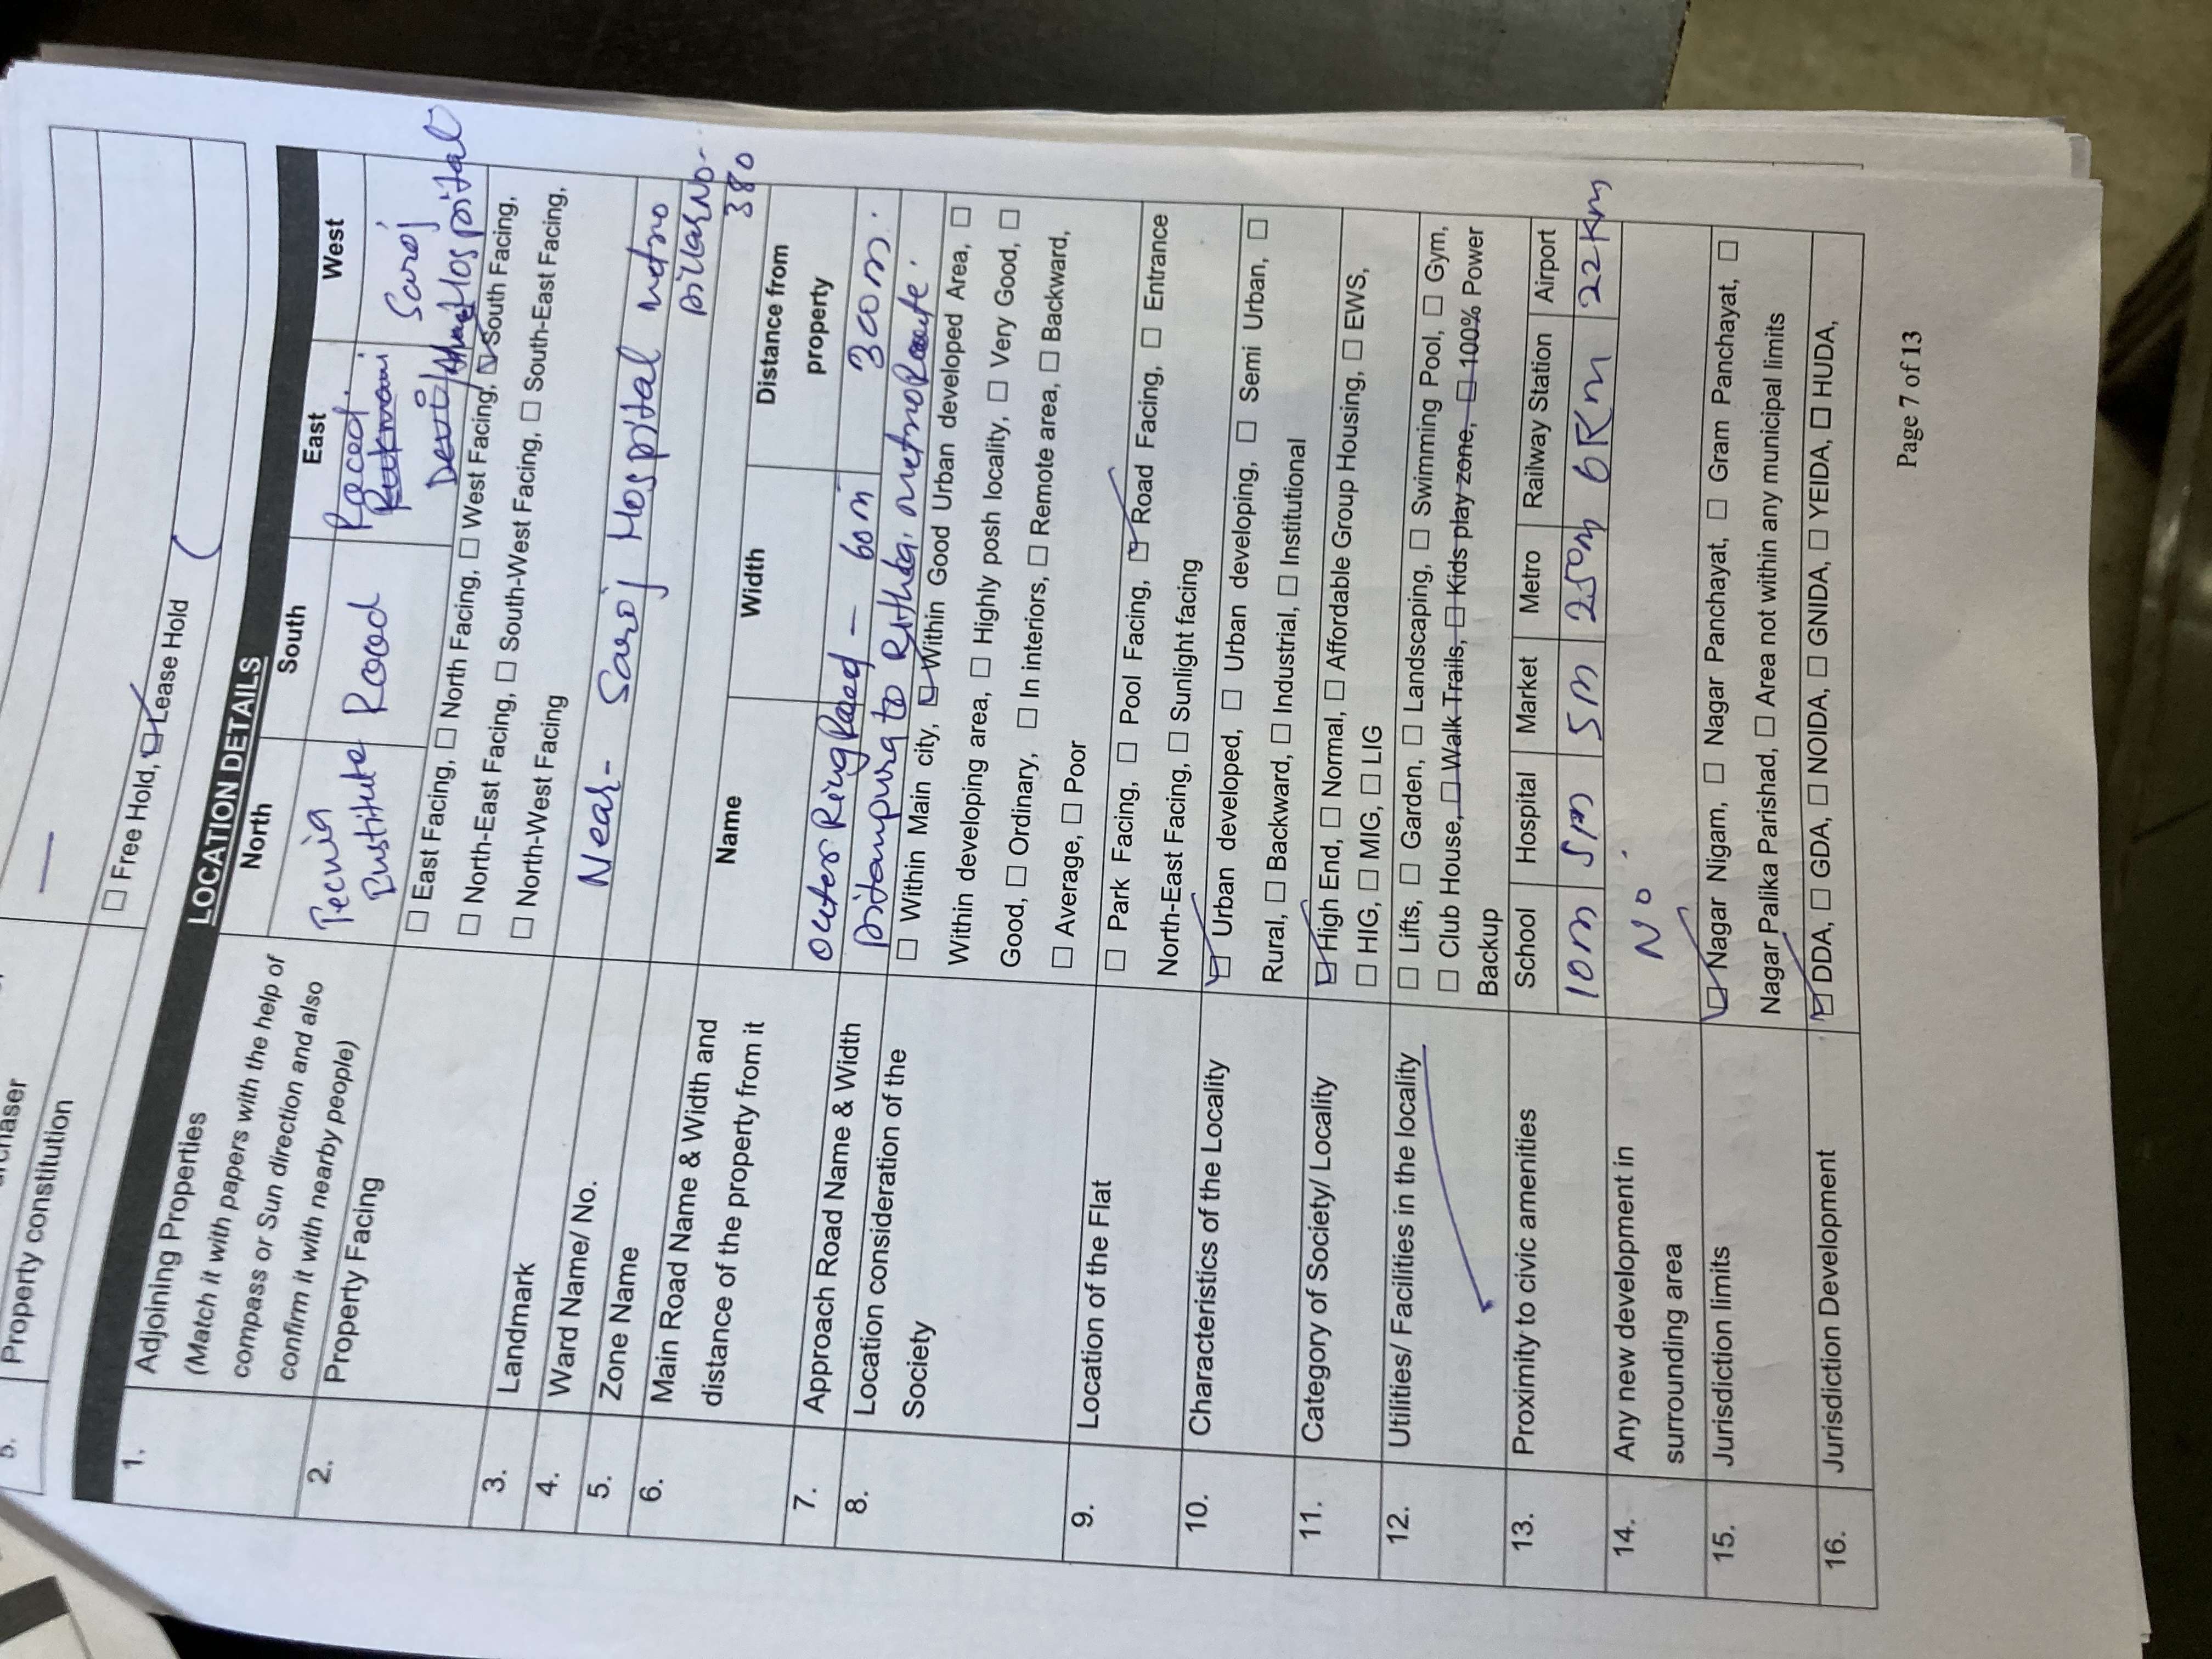 5. Property constitution
☐ Free Hold, ☑ Lease Hold
LOCATION DETAILS
1. Adjoining Properties
(Match it with papers with the help of
compass or Sun direction and also
confirm it with nearby people)
North South East West
Tecnia Institute Road Saroj Hospital
Devi
2. Property Facing
☐ East Facing, ☐ North Facing, ☐ West Facing, ☑ South Facing,
☐ North-East Facing, ☐ South-West Facing, ☐ South-East Facing,
☐ North-West Facing
3. Landmark
Near- Saroj Hospital metro
pillar No-
380
4. Ward Name/ No.
5. Zone Name
6. Main Road Name & Width and
distance of the property from it
Name Width Distance from
property
Outer Ring Road – 60m 300m.
7. Approach Road Name & Width
Pitampura to Rithla metro Route.
8. Location consideration of the
Society
☐ Within Main city, ☑ Within Good Urban developed Area, ☐
Within developing area, ☐ Highly posh locality, ☐ Very Good, ☐
Good, ☐ Ordinary, ☐ In interiors, ☐ Remote area, ☐ Backward,
☐ Average, ☐ Poor
9. Location of the Flat
☐ Park Facing, ☐ Pool Facing, ☑ Road Facing, ☐ Entrance
North-East Facing, ☐ Sunlight facing
10. Characteristics of the Locality
☑ Urban developed, ☐ Urban developing, ☐ Semi Urban, ☐
Rural, ☐ Backward, ☐ Industrial, ☐ Institutional
11. Category of Society/ Locality
☑ High End, ☐ Normal, ☐ Affordable Group Housing, ☐ EWS,
☐ HIG, ☐ MIG, ☐ LIG
12. Utilities/ Facilities in the locality
☐ Lifts, ☐ Garden, ☐ Landscaping, ☐ Swimming Pool, ☐ Gym,
☐ Club House, ☐ Walk Trails, ☐ Kids play zone, ☐ 100% Power
Backup
13. Proximity to civic amenities
School Hospital Market Metro Railway Station Airport
10m 5m 5m 250m 6Km 22Km
14. Any new development in
surrounding area
No.
15. Jurisdiction limits
☑ Nagar Nigam, ☐ Nagar Panchayat, ☐ Gram Panchayat, ☐
Nagar Palika Parishad, ☐ Area not within any municipal limits
16. Jurisdiction Development
☑ DDA, ☐ GDA, ☐ NOIDA, ☐ GNIDA, ☐ YEIDA, ☐ HUDA,
Page 7 of 13